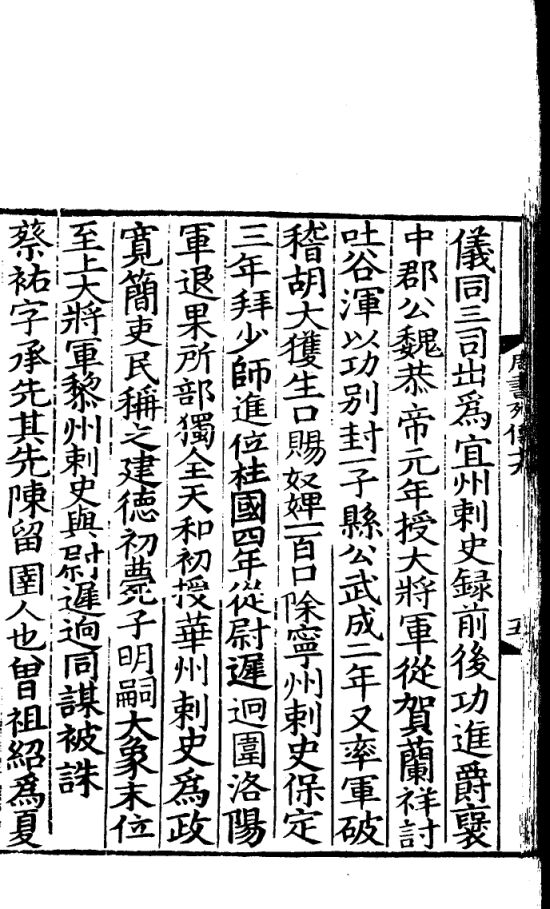 周書列傳十九
五
儀同三司出爲宜州刺史録前後功進爵襃
中郡公魏恭帝元年授大將軍從賀蘭祥討
吐谷渾以功别封一子縣公武成二年又率軍破
稽胡大獲生口賜奴婢一百口除寧州刺史保定
三年拜少師進位柱國四年從尉遲迥圍洛陽
軍退果所部獨全天和初授華州刺史爲政
寛簡吏民稱之建德初薨子明嗣大象末位
至上大將軍黎州刺史與尉遲迥同謀被誅
蔡祐字承先其先陳留圉人也曾祖紹爲夏